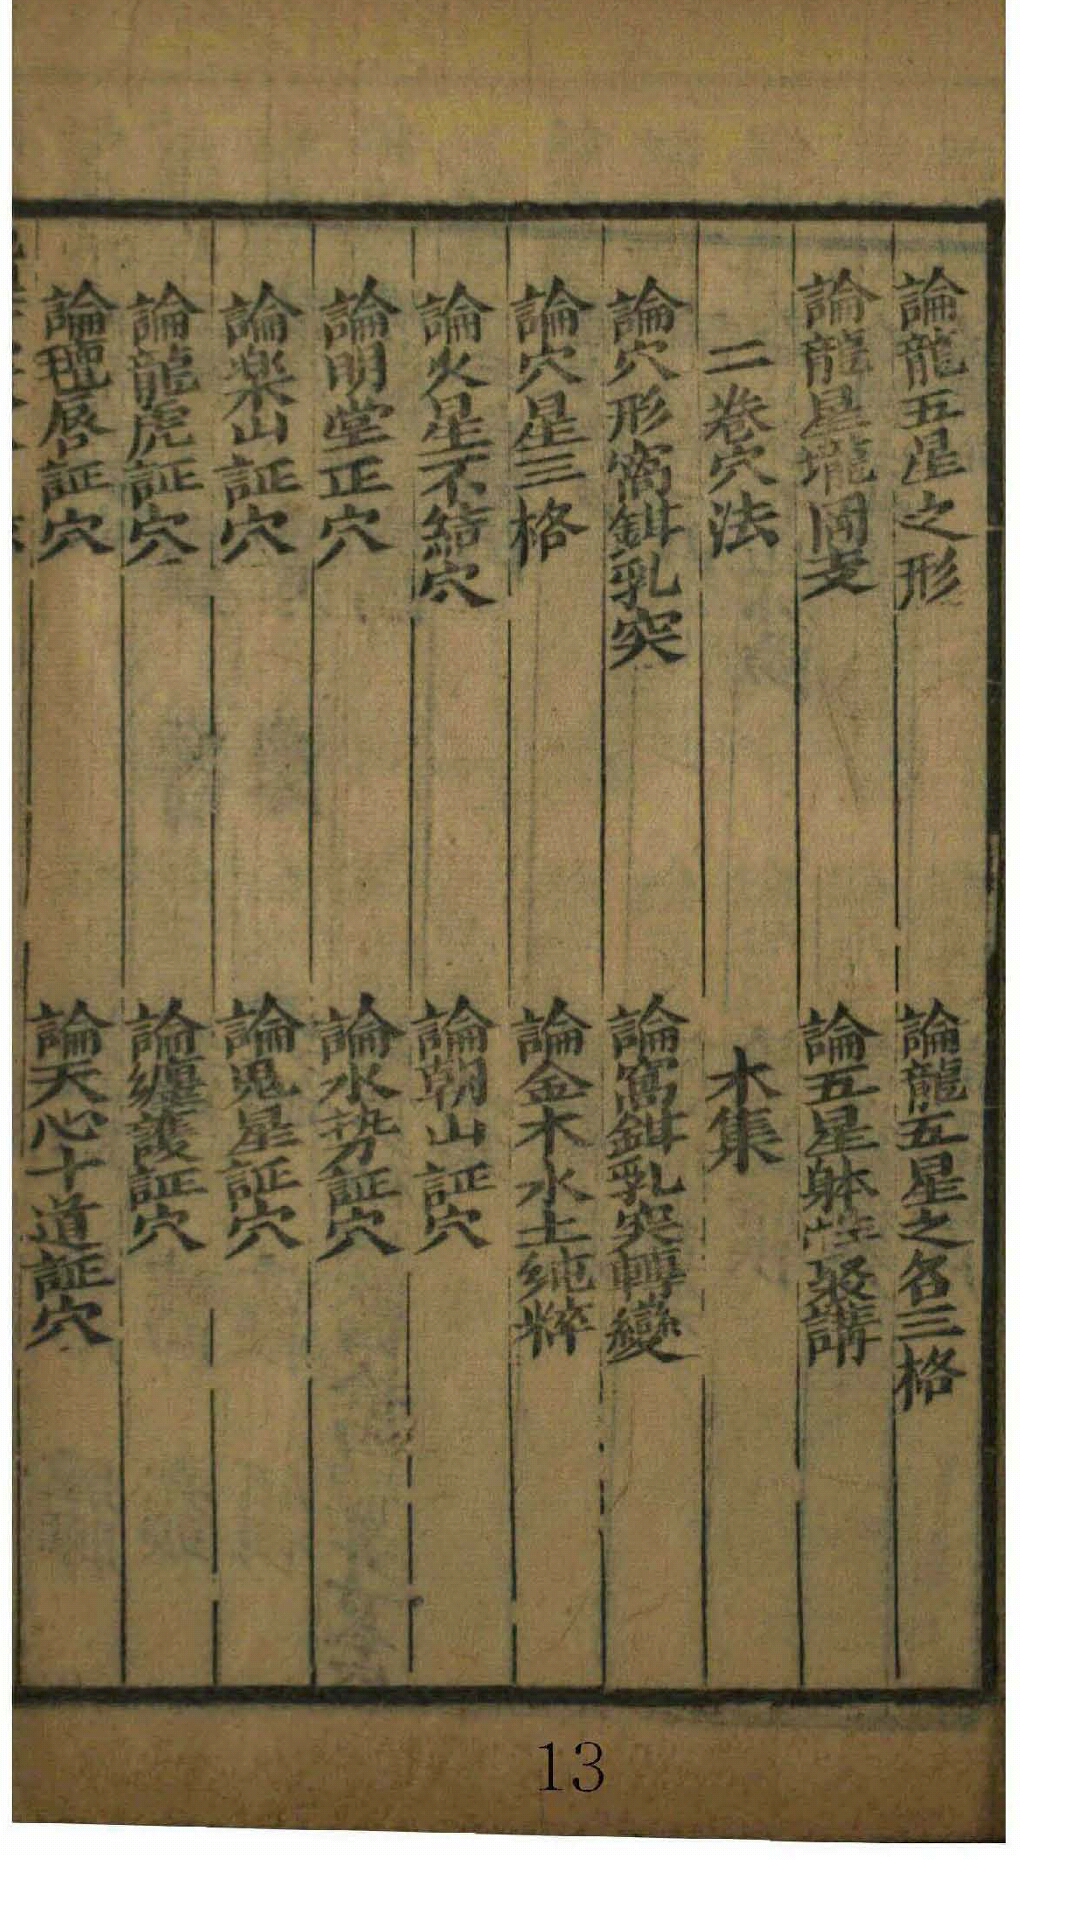 論龍五星之形　論龍五星之名三格
論龍星壠岡支　論五星躰性裀講
二卷穴法　木集
論穴形窩鉗乳突　論窩鉗乳突轉變
論穴星三格　論金木水土純粹
論火星不結穴　論朝山証穴
論明堂正穴　論水势証穴
論樂山証穴　論鬼星証穴
論龍虎証穴　論纏護証穴
論氊唇証穴　論天心十道証穴
13